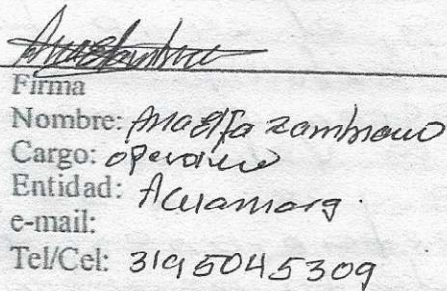 Firma
Nombre: Ana Elfa Zambrano
Cargo: operario
Entidad: Acuamarg.
e-mail:
Tel/Cel: 3195045309